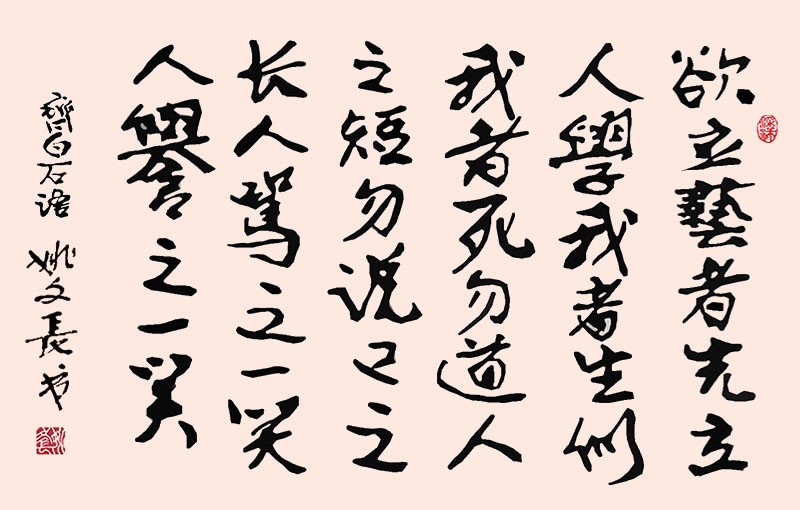 欲立藝者先立
人學我者生似
我者死勿道人
之短勿说已之
长人骂之一笑
人譽之一笑
齊白石语 姚文長书